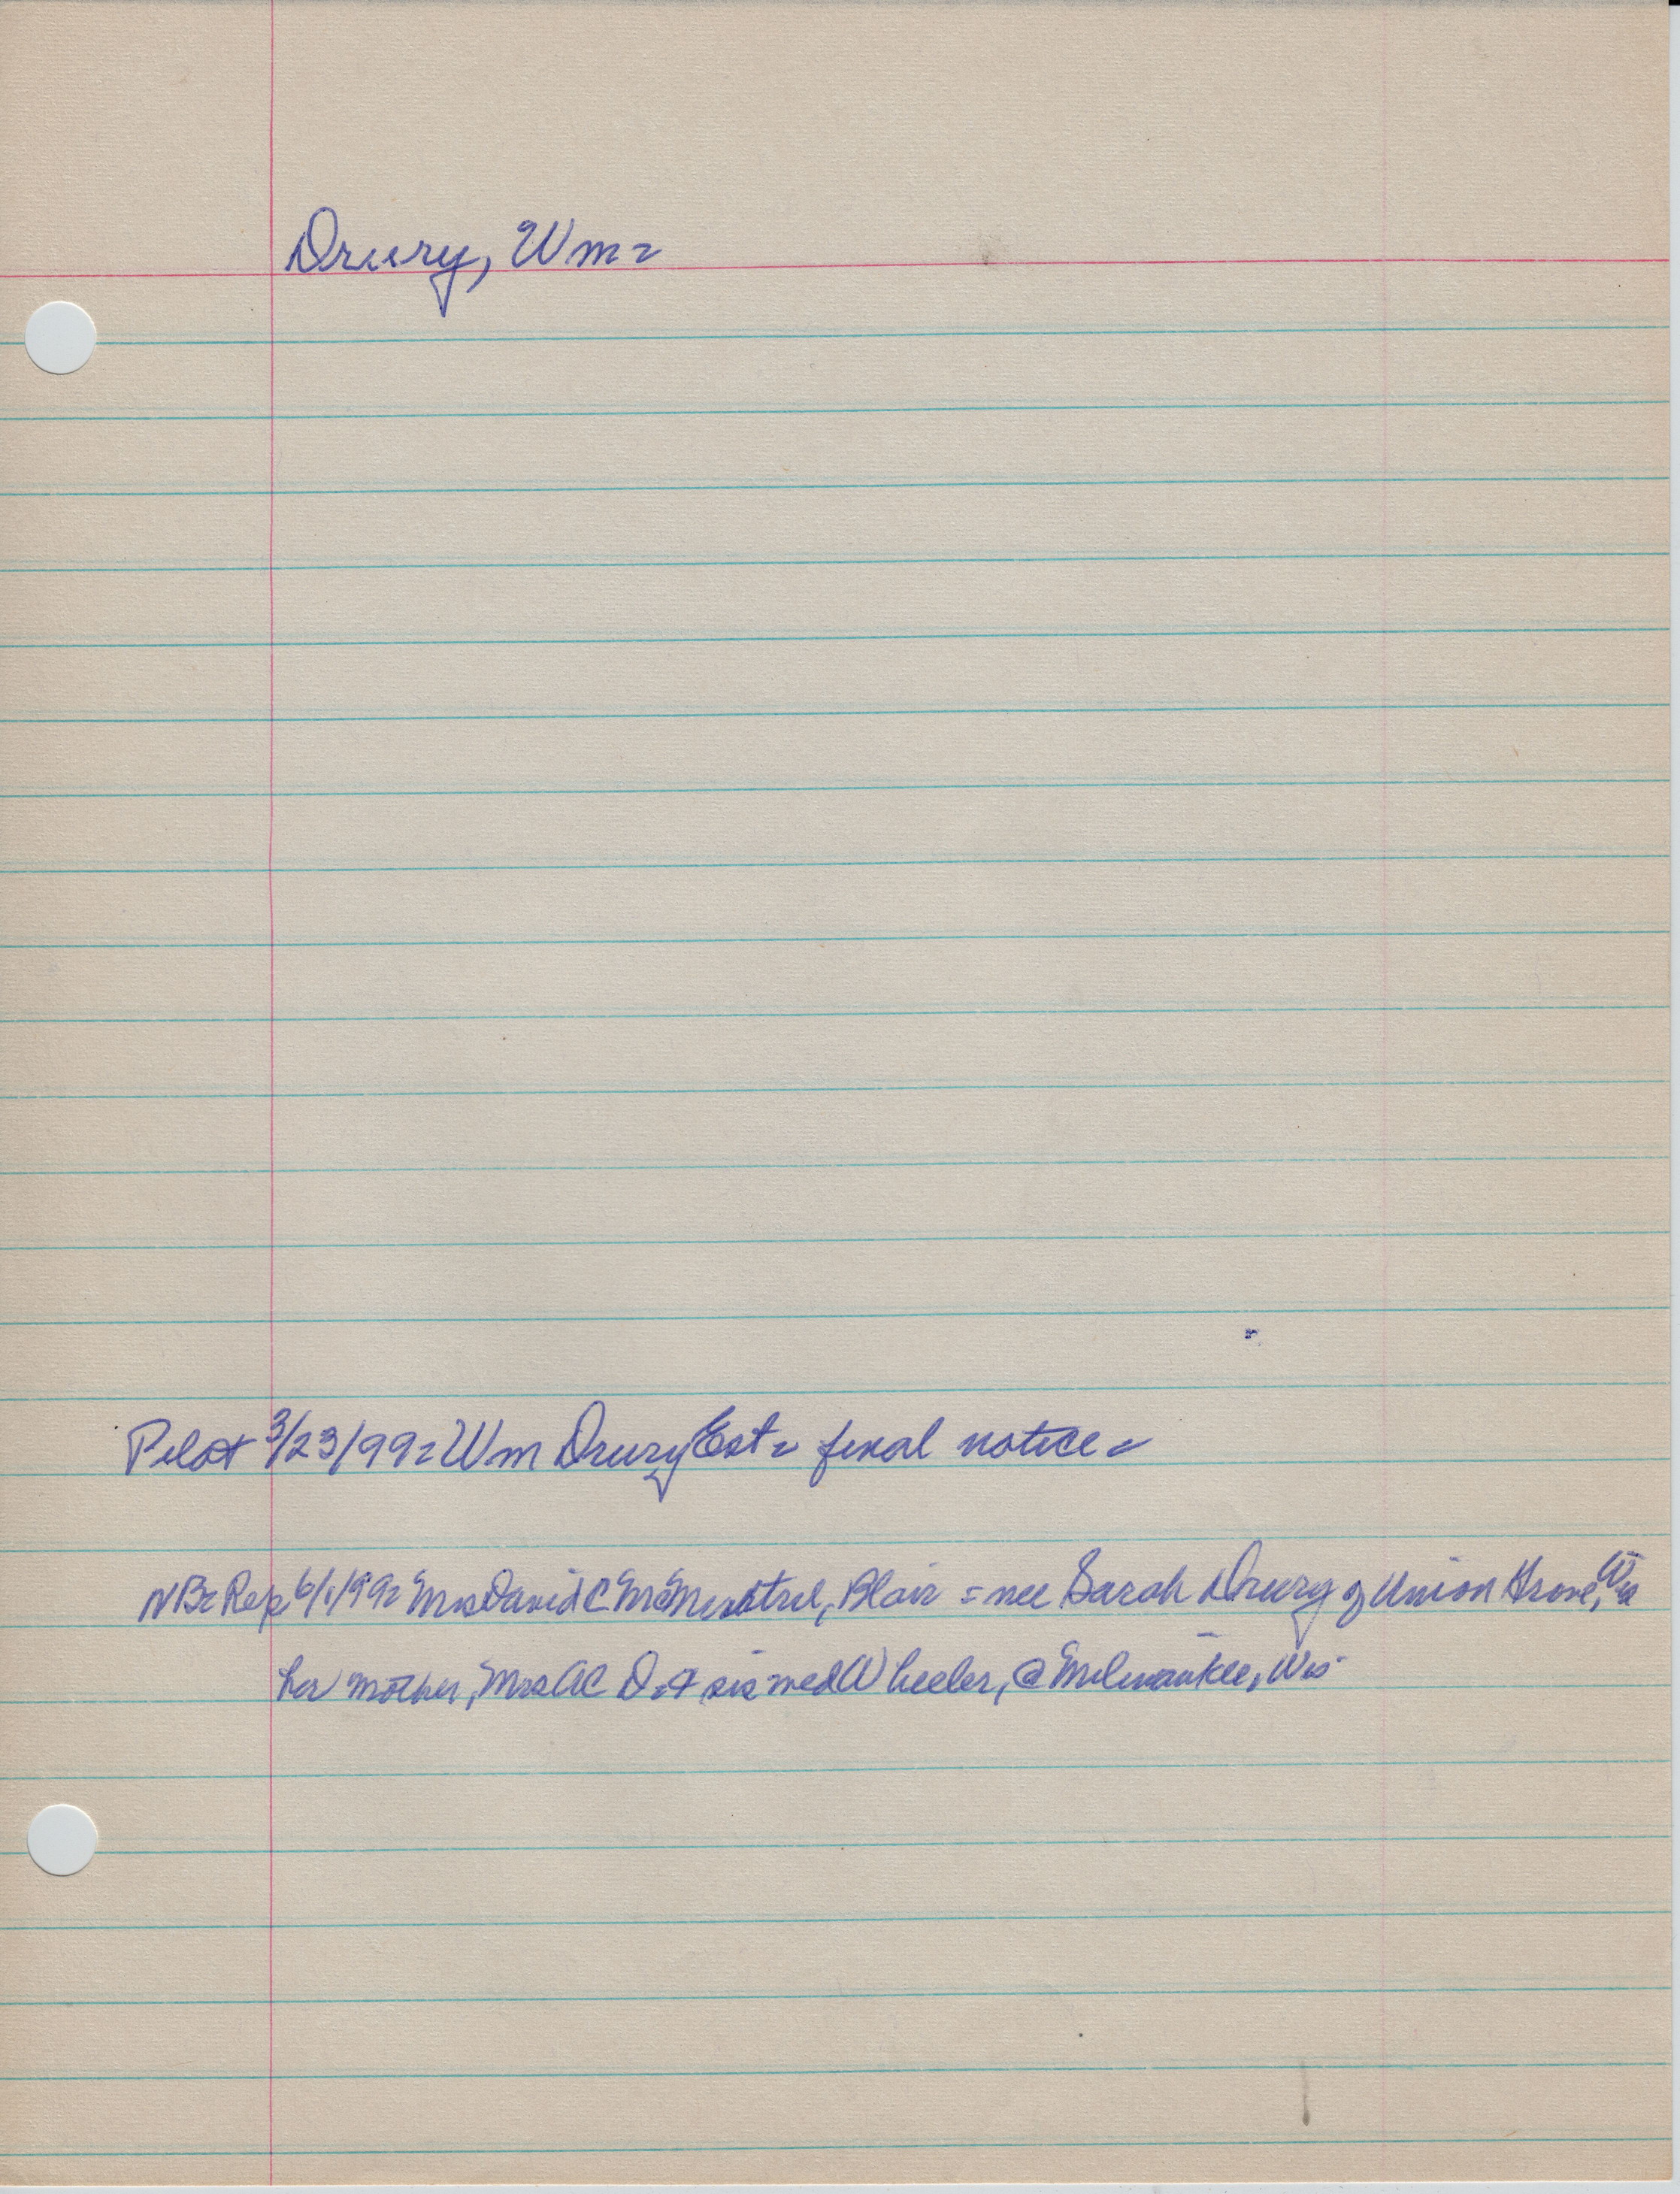 Drury, Wm =
Pilot 3/23/99 = Wm Drury Est = final notice =
NBeRep 6/1/99 = Mrs David C , Blair = nee Sarah Drury of Union Grove, Wis
her mother, Mrs AC D + sis med Wheeler, @ Milwaukee, Wis